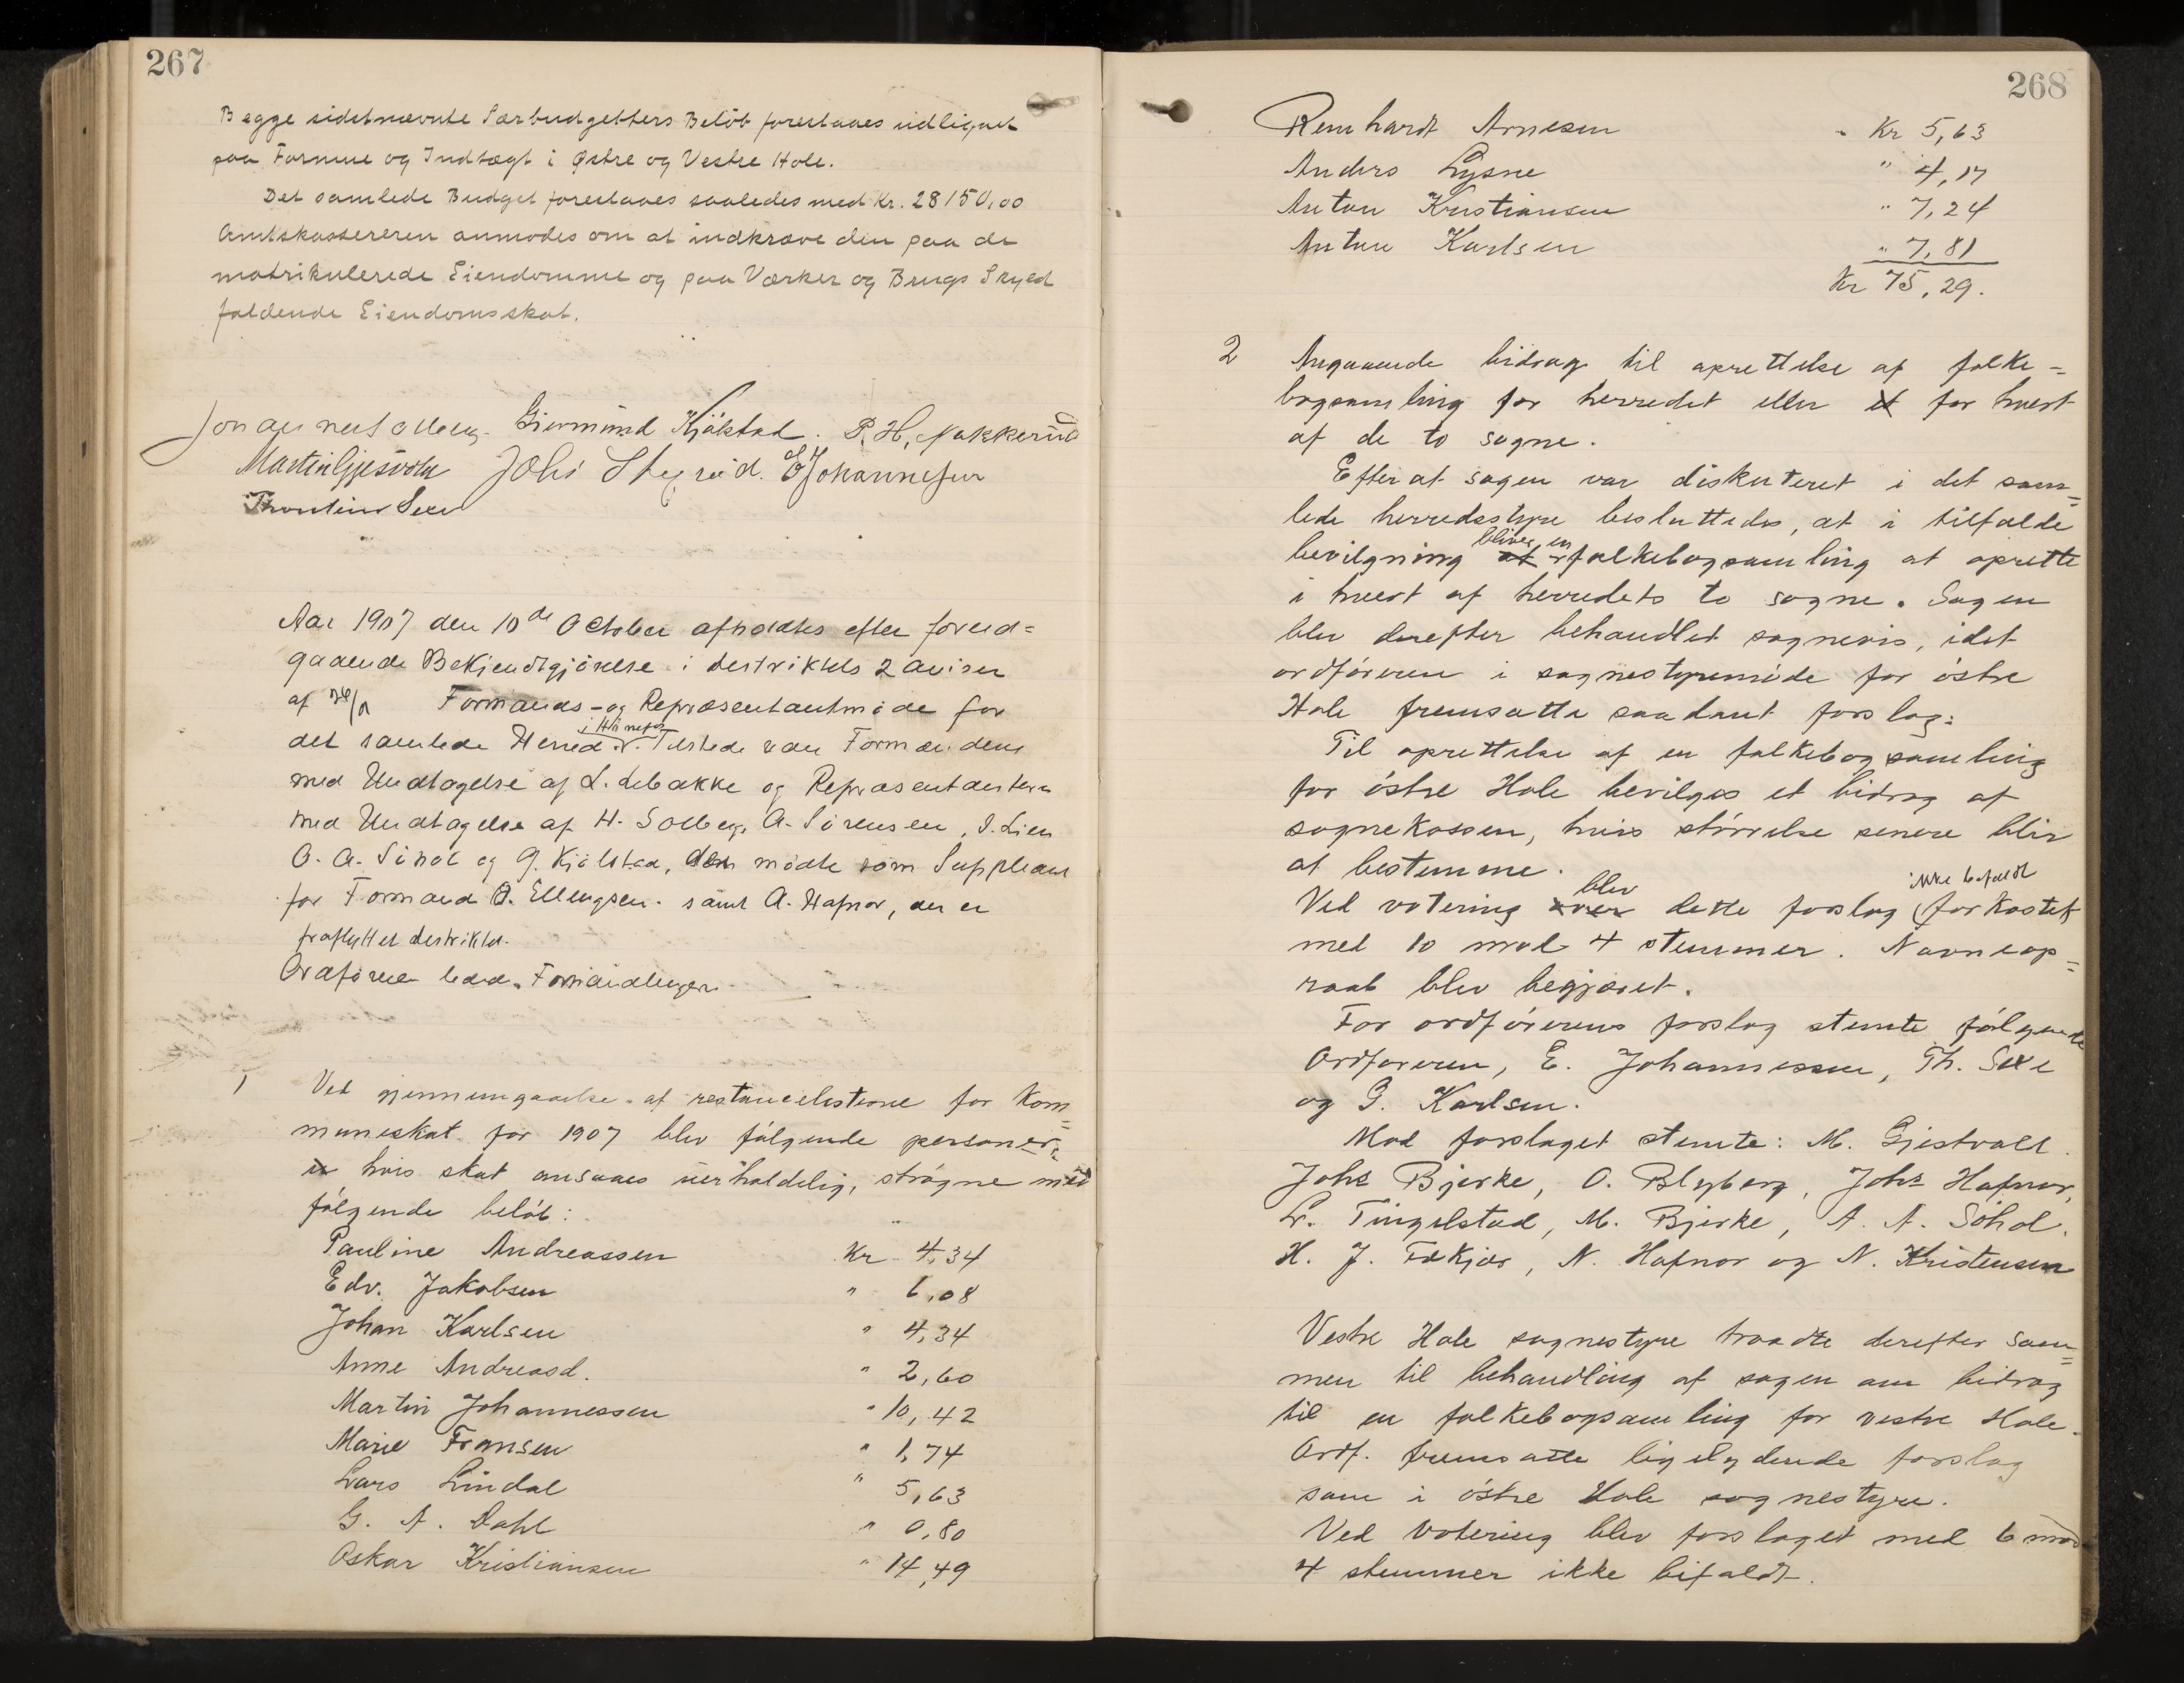 267
Begge sidstnævnte Særbudgetters Beløb foreslaaes udlignet
paa Formue og Indtægt i Østre og Vestre Hole.
Det samlede Budget foreslaaes saaledes med Kr. 28150,00
Amtskassereren anmodes om at indkræve den paa de
matrikulerede Eiendomme og paa Værker og Brugs Skyld
faldende Eiendomsskat.
Gudmund Kjölstad. P. H. Nakkerud
Martin Gjesvold Johs Stegrud. E Johannessen
Thorstein Sexe
Aar 1907 den 10de October afholdtes efter forud=
gaaende Bekjendtgjörelse i destriktets 2 aviser
af Formands- og Repræsentantmöde for
det samlede Herred i Hönefos. Tilstede var Formændene
med Undtagelse af L. Lebakke og Repræsentanterne
med Undtagelse af H. Solberg, A. Sörensen, I. Lien
A. A. Söhol og G. Kjölstad, der mödte som Suppleant
for Formand O. Ellingsen. samt A. Hafnor, der er
fraflyttet destriktet.
Ordföreren ledede Forhandlingerne
1 Ved gjennemgaaelse af restancelisterne for kom=
muneskat for 1907 blev fölgende personer,
hvis skat ansaaes uerholdelig, strögne med
fölgende belöb:
Pauline Andreassen Kr 4,34
Edv. Jakobsen " 6,08
Johan Karlsen " 4,34
Anne Andreasd. " 2,60
Martin Johannessen " 10,42
Marie Fransen " 1,74
Lars Lindal " 5,63
G. A. Dahl " 0,80
Oskar Kristiansen " 14,49
268
Reinhardt Arnesen Kr 5,63
Anders Lysne " 4,17
Anton Kristiansen " 7,24
Anton Karlsen " 7,81
Kr 75,29.
2 Angaaende bidrag til oprettelse af folke=
bogsamling for herredet eller et for hvert
af de to sogne.
Efterat sagen var diskuteret i det sam=
lede herredsstyre besluttedes, at i tilfælde
bevilgning bliver en folkebogsamling at oprette
i hvert af herredets to sogne. Sagen
blev derefter behandlet sognevis, idet
ordföreren i sognestyremöde for östre
Hole fremsatte saadant forslag:
Til oprettelse af en folkebogsamling
for östre Hole bevilges et bidrag af
sognekassen, hvis störrelse senere blir
at bestemme.
Ved votering blev dette forslag (forkastet ikke bifaldt
med 10 mod 4 stemmer. Navneop=
raab blev begjæret.
For ordförerens forslag stemte fölgende
Ordföreren, E. Johannessen, Th. Sexe
og G. Karlsen.
Mod forslaget stemte: M. Gjestvald.
Johs Bjerke, O. Blyberg, Johs Hafnor,
L. Tingelstad, M. Bjerke, A. A. Söhol.
H. J. Fækjær, N. Hafnor og N. Kristensen
Vestre Hole sognestyre traadte derefter sam=
men til behandling af sagen om bidrag
til en folkebogsamling for vestre Hole.
Ordf. fremsatte ligelydende forslag
som i östre Hole sognestyre.
Ved votering blev forslaget med 6 mod
4 stemmer ikke bifaldt.